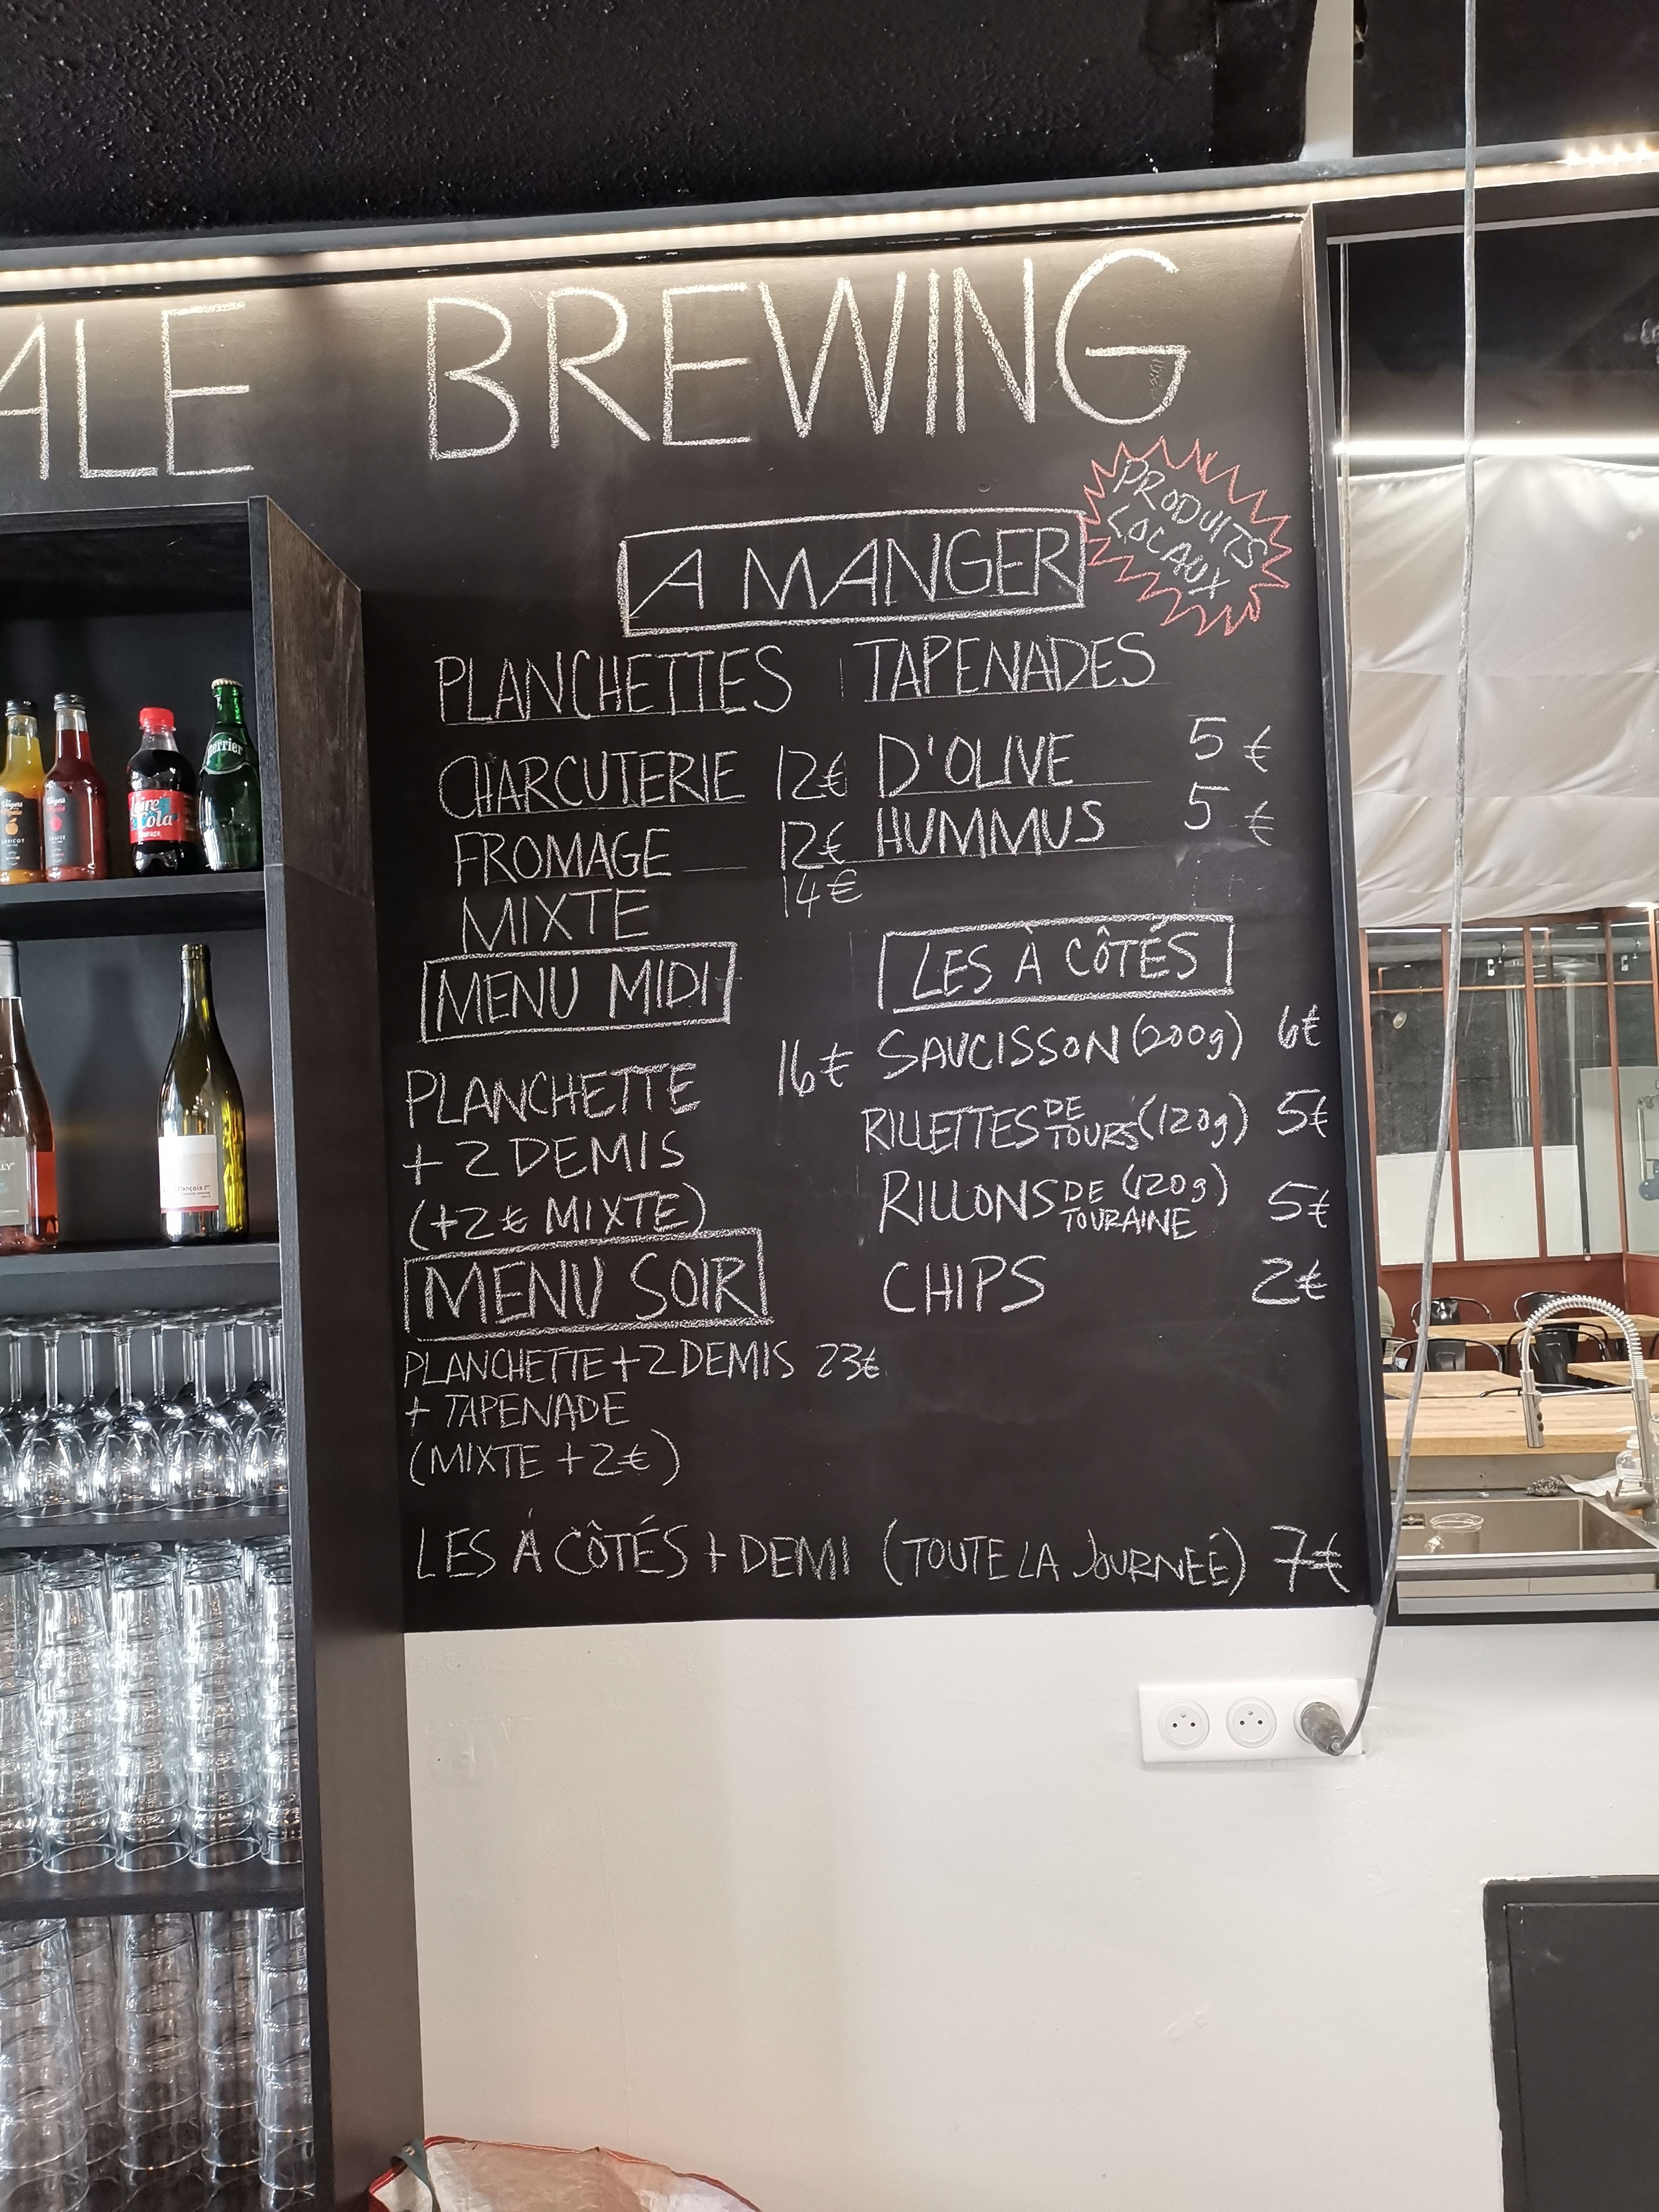 ALE BREWING
PRODUITS
LOCAUX
A MANGER
PLANCHETTES
CHARCUTERIE 12€
FROMAGE 12€
MIXTE 14€
TAPENADES
D'OLIVE 5€
HUMMUS 5€
MENU MIDI
PLANCHETTE 16€
+ 2 DEMIS
(+2€ MIXTE)
MENU SOIR
PLANCHETTE + 2 DEMIS 23€
+ TAPENADE
(MIXTE +2€)
LES À CÔTÉS
SAUCISSON (200g) 6€
RILLETTES DE TOURS (120g) 5€
RILLONS DE TOURAINE (120g) 5€
CHIPS 2€
LES À CÔTÉS + DEMI (TOUTE LA JOURNEÉ) 7€
Perrier
Cola